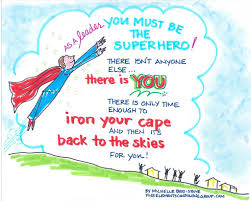 AS A leader YOU MUST BE
THE
SUPERHERO!
THERE ISN'T ANYONE
ELSE...
there is YOU
THERE IS ONLY TIME
ENOUGH TO
iron your cape
AND THEN ITS
back to the skies
FOR YOU!
BY MICHELLE